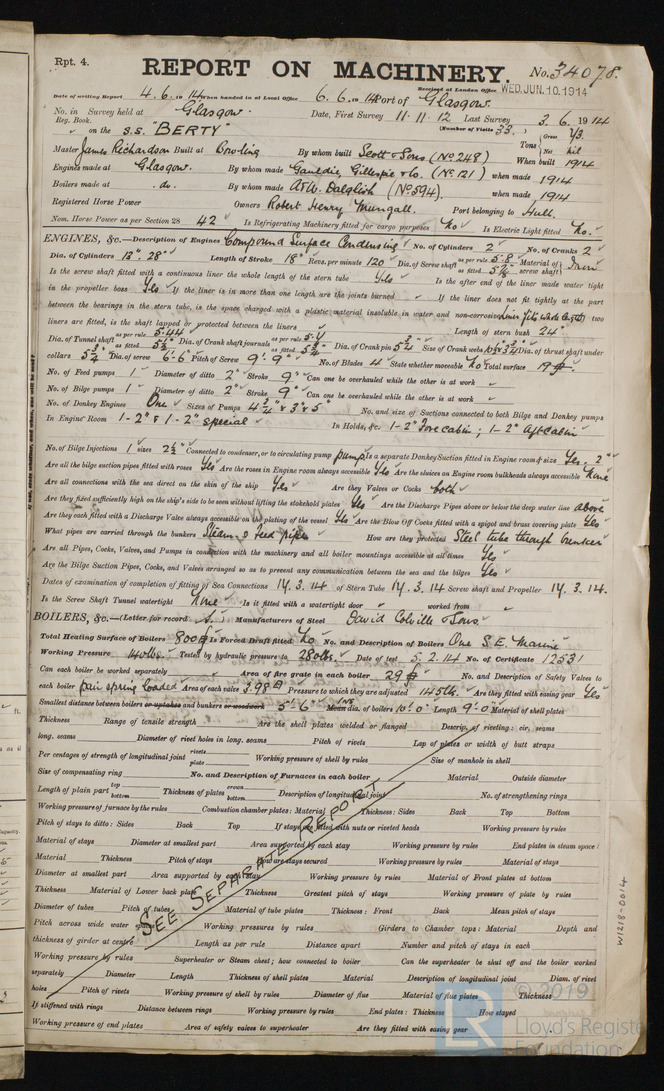 Rpt. 4.
REPORT ON MACHINERY. No. 34078.
Received at London Office WED. JUN. 10. 1914
Date of writing Report 4.6. 1914 When handed in at Local Office 6.6. 1914 Port of Glasgow.
No. in Survey held at Glasgow. Date, First Survey 11.11.12 Last Survey 3.6.1914
Reg. Book. (Number of Visits 33.)
on the S.S. "BERTY" Tons Gross 43. Net nil
Master James Richardson Built at Bowling By whom built Scott & Sons (No. 248) When built 1914
Engines made at Glasgow. By whom made Gauldie, Gillespie & Co. (No. 121) when made 1914
Boilers made at do. By whom made A & W. Dalglish (No. 594). when made 1914
Registered Horse Power Owners Robert Henry Mungall. Port belonging to Hull.
Nom. Horse Power as per Section 28 42 Is Refrigerating Machinery fitted for cargo purposes No Is Electric Light fitted No.
ENGINES, &c.—Description of Engines Compound Surface Condensing No. of Cylinders 2 No. of Cranks 2
Dia. of Cylinders 13" 28" Length of Stroke 18" Revs. per minute 120 Dia. of Screw shaft as per rule 5.8 as fitted Material of screw shaft Iron
Is the screw shaft fitted with a continuous liner the whole length of the stern tube Yes Is the after end of the liner made water tight
in the propeller boss Yes If the liner is in more than one length are the joints burned If the liner does not fit tightly at the part
between the bearings in the stern tube, is the space charged with a plastic material insoluble in water and non-corrosive Liner fits whole length If two
liners are fitted, is the shaft lapped or protected between the liners Length of stern bush 24"
Dia. of Tunnel shaft as per rule 5.44 as fitted 5½" Dia. of Crank shaft journals as per rule 5.7 as fitted 5¾" Dia. of Crank pin 5¾" Size of Crank webs Dia. of thrust shaft under
collars 5¾" Dia. of screw 6'.6" Pitch of Screw 9'.9" No. of Blades 4 State whether moveable No Total surface 19
No. of Feed pumps 1 Diameter of ditto 2" Stroke 9" Can one be overhauled while the other is at work
No. of Bilge pumps 1 Diameter of ditto 2" Stroke 9" Can one be overhauled while the other is at work
No. of Donkey Engines One Sizes of Pumps 4¾" & 3" & 5" No. and size of Suctions connected to both Bilge and Donkey pumps
In Engine Room 1 - 2" & 1 - 2" special In Holds, &c. 1 - 2" Forecabin; 1 - 2" Aft cabin
No. of Bilge Injections 1 sizes 2½" Connected to condenser, or to circulating pump pump Is a separate Donkey Suction fitted in Engine room & size Yes. 2"
Are all the bilge suction pipes fitted with roses Yes Are the roses in Engine room always accessible Yes Are the sluices on Engine room bulkheads always accessible None
Are all connections with the sea direct on the skin of the ship Yes Are they Valves or Cocks both
Are they fixed sufficiently high on the ship's side to be seen without lifting the stokehold plates Yes Are the Discharge Pipes above or below the deep water line above
Are they each fitted with a Discharge Valve always accessible on the plating of the vessel Yes Are the Blow Off Cocks fitted with a spigot and brass covering plate Yes
What pipes are carried through the bunkers Steam & Feed pipes How are they protected Steel tube through bunker
Are all Pipes, Cocks, Valves, and Pumps in connection with the machinery and all boiler mountings accessible at all times Yes
Are the Bilge Suction Pipes, Cocks, and Valves arranged so as to prevent any communication between the sea and the bilges Yes
Dates of examination of completion of fitting of Sea Connections 14.3.14 of Stern Tube 14.3.14 Screw shaft and Propeller 14.3.14.
Is the Screw Shaft Tunnel watertight None Is it fitted with a watertight door worked from
BOILERS, &c.—(Letter for record S.) Manufacturers of Steel David Colville & Sons
Total Heating Surface of Boilers 800 Is Forced Draft fitted No No. and Description of Boilers One S.E. Marine
Working Pressure 140 lbs. Tested by hydraulic pressure to 280 lbs. Date of test 5.2.14 No. of Certificate 12531
Can each boiler be worked separately Area of fire grate in each boiler 29 No. and Description of Safety Valves to
each boiler pair spring loaded Area of each valve 3.98 Pressure to which they are adjusted 145 lbs. Are they fitted with easing gear Yes
Smallest distance between boilers or uptakes and bunkers or woodwork 5'-6" Mean dia. of boilers 10'.0" Length 9'.0" Material of shell plates
Thickness Range of tensile strength Are the shell plates welded or flanged Descrip. of riveting: cir. seams
long. seams Diameter of rivet holes in long. seams Pitch of rivets Lap of plates or width of butt straps
Per centages of strength of longitudinal joint rivets plate Working pressure of shell by rules Size of manhole in shell
Size of compensating ring No. and Description of Furnaces in each boiler Material Outside diameter
Length of plain part top bottom Thickness of plates crown bottom Description of longitudinal joint No. of strengthening rings
Working pressure of furnace by the rules Combustion chamber plates: Material Thickness: Sides Back Top Bottom
Pitch of stays to ditto: Sides Back Top If stays are fitted with nuts or riveted heads Working pressure by rules
Material of stays Diameter at smallest part Area supported by each stay Working pressure by rules End plates in steam space:
Material Thickness Pitch of stays How are stays secured Working pressure by rules Material of stays
Diameter at smallest part Area supported by each stay Working pressure by rules Material of Front plates at bottom
Thickness Material of Lower back plate Thickness Greatest pitch of stays Working pressure of plate by rules
Diameter of tubes Pitch of tubes Material of tube plates Thickness: Front Back Mean pitch of stays
Pitch across wide water spaces Working pressures by rules Girders to Chamber tops: Material Depth and
thickness of girder at centre Length as per rule Distance apart Number and pitch of stays in each
Working pressure by rules Superheater or Steam chest; how connected to boiler Can the superheater be shut off and the boiler worked
separately Diameter Length Thickness of shell plates Material Description of longitudinal joint Diam. of rivet
holes Pitch of rivets Working pressure of shell by rules Diameter of flue Material of flue plates Thickness
If stiffened with rings Distance between rings Working pressure by rules End plates: Thickness How stayed
Working pressure of end plates Area of safety valves to superheater Are they fitted with easing gear
SEE SEPARATE REPORT
W1218-0014
© 2019
LR
Lloyd's Register
Foundation